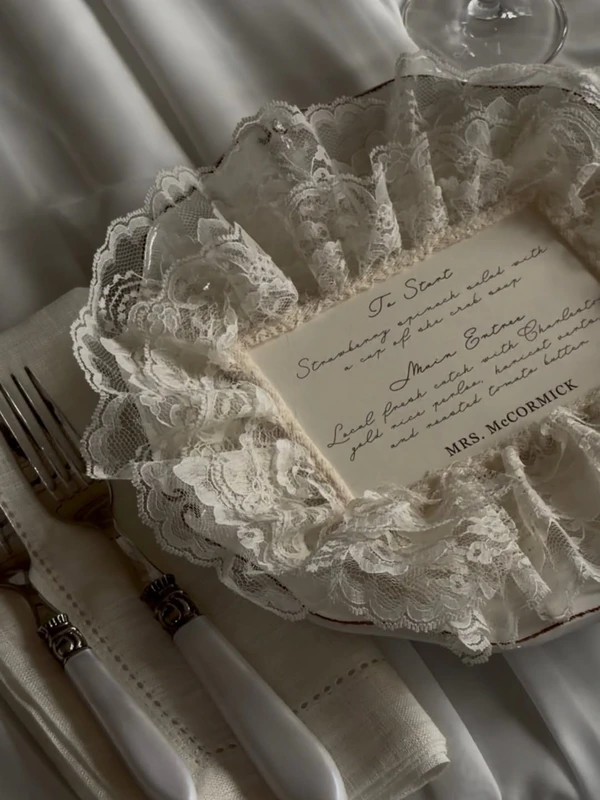 To Start
Strawberry spinach salad with
a cup of she crab soup
Main Entree
Local fresh catch with Charleston
gold rice perloo, haricot verts
and roasted tomato butter
MRS. McCORMICK